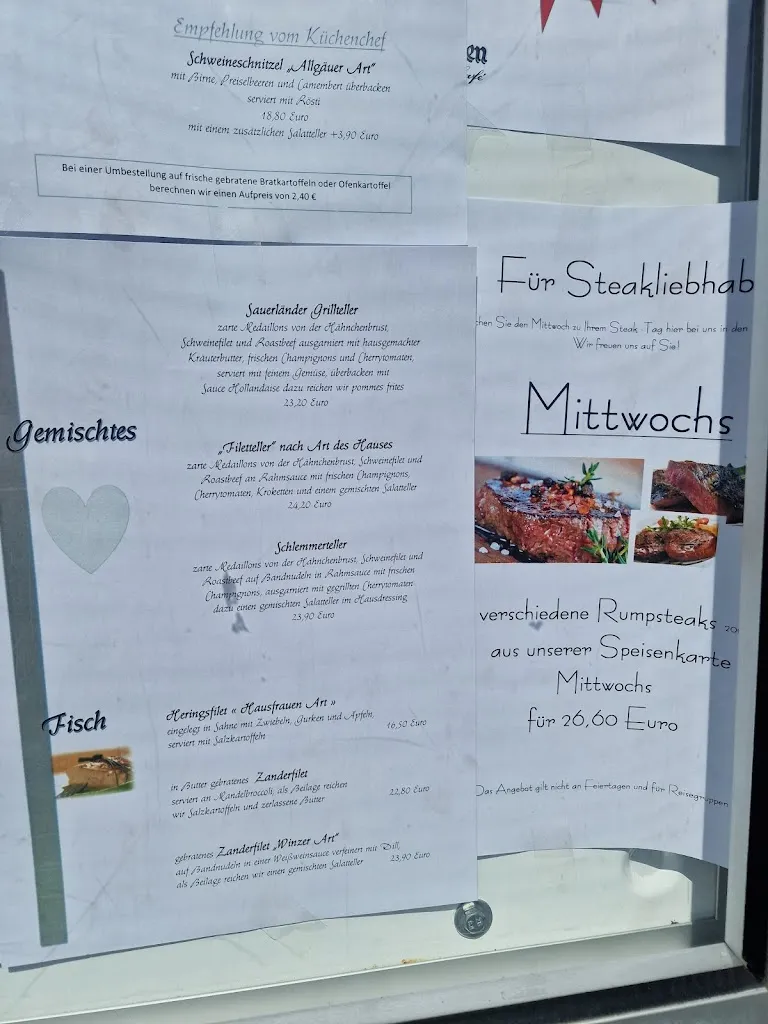 Empfehlung vom Küchenchef
Schweineschnitzel „Allgäuer Art"
mit Birne, Preiselbeeren und Camembert überbacken
serviert mit Rösti
18,80 Euro
mit einem zusätzlichen Salatteller +3,90 Euro
Bei einer Umbestellung auf frische gebratene Bratkartoffeln oder Ofenkartoffel
berechnen wir einen Aufpreis von 2,40 €
Gemischtes
Sauerländer Grillteller
zarte Medaillons von der Hähnchenbrust,
Schweinefilet und Roastbeef ausgarniert mit hausgemachter
Kräuterbutter, frischen Champignons und Cherrytomaten,
serviert mit feinem Gemüse, überbacken mit
Sauce Hollandaise dazu reichen wir pommes frites
23,20 Euro
„Filetteller" nach Art des Hauses
zarte Medaillons von der Hähnchenbrust, Schweinefilet und
Roastbeef an Rahmsauce mit frischen Champignons,
Cherrytomaten, Kroketten und einem gemischten Salatteller
24,20 Euro
Schlemmerteller
zarte Medaillons von der Hähnchenbrust, Schweinefilet und
Roastbeef auf Bandnudeln in Rahmsauce mit frischen
Champignons, ausgarniert mit gegrillten Cherrytomaten
dazu einen gemischten Salatteller im Hausdressing
23,90 Euro
Fisch
Heringsfilet « Hausfrauen Art »
eingelegt in Sahne mit Zwiebeln, Gurken und Äpfeln,
serviert mit Salzkartoffeln 16,50 Euro
in Butter gebratenes Zanderfilet
serviert an Mandelbroccoli, als Beilage reichen
wir Salzkartoffeln und zerlassene Butter 22,80 Euro
gebratenes Zanderfilet „Winzer Art"
auf Bandnudeln in einer Weißweinsauce verfeinert mit Dill,
als Beilage reichen wir einen gemischten Salatteller 23,90 Euro
en
afé
Für Steakliebhab
chen Sie den Mittwoch zu Ihrem Steak-Tag hier bei uns in den
Wir freuen uns auf Sie!
Mittwochs
verschiedene Rumpsteaks
aus unserer Speisenkarte
Mittwochs
für 26,60 Euro
Das Angebot gilt nicht an Feiertagen und für Reisegruppen